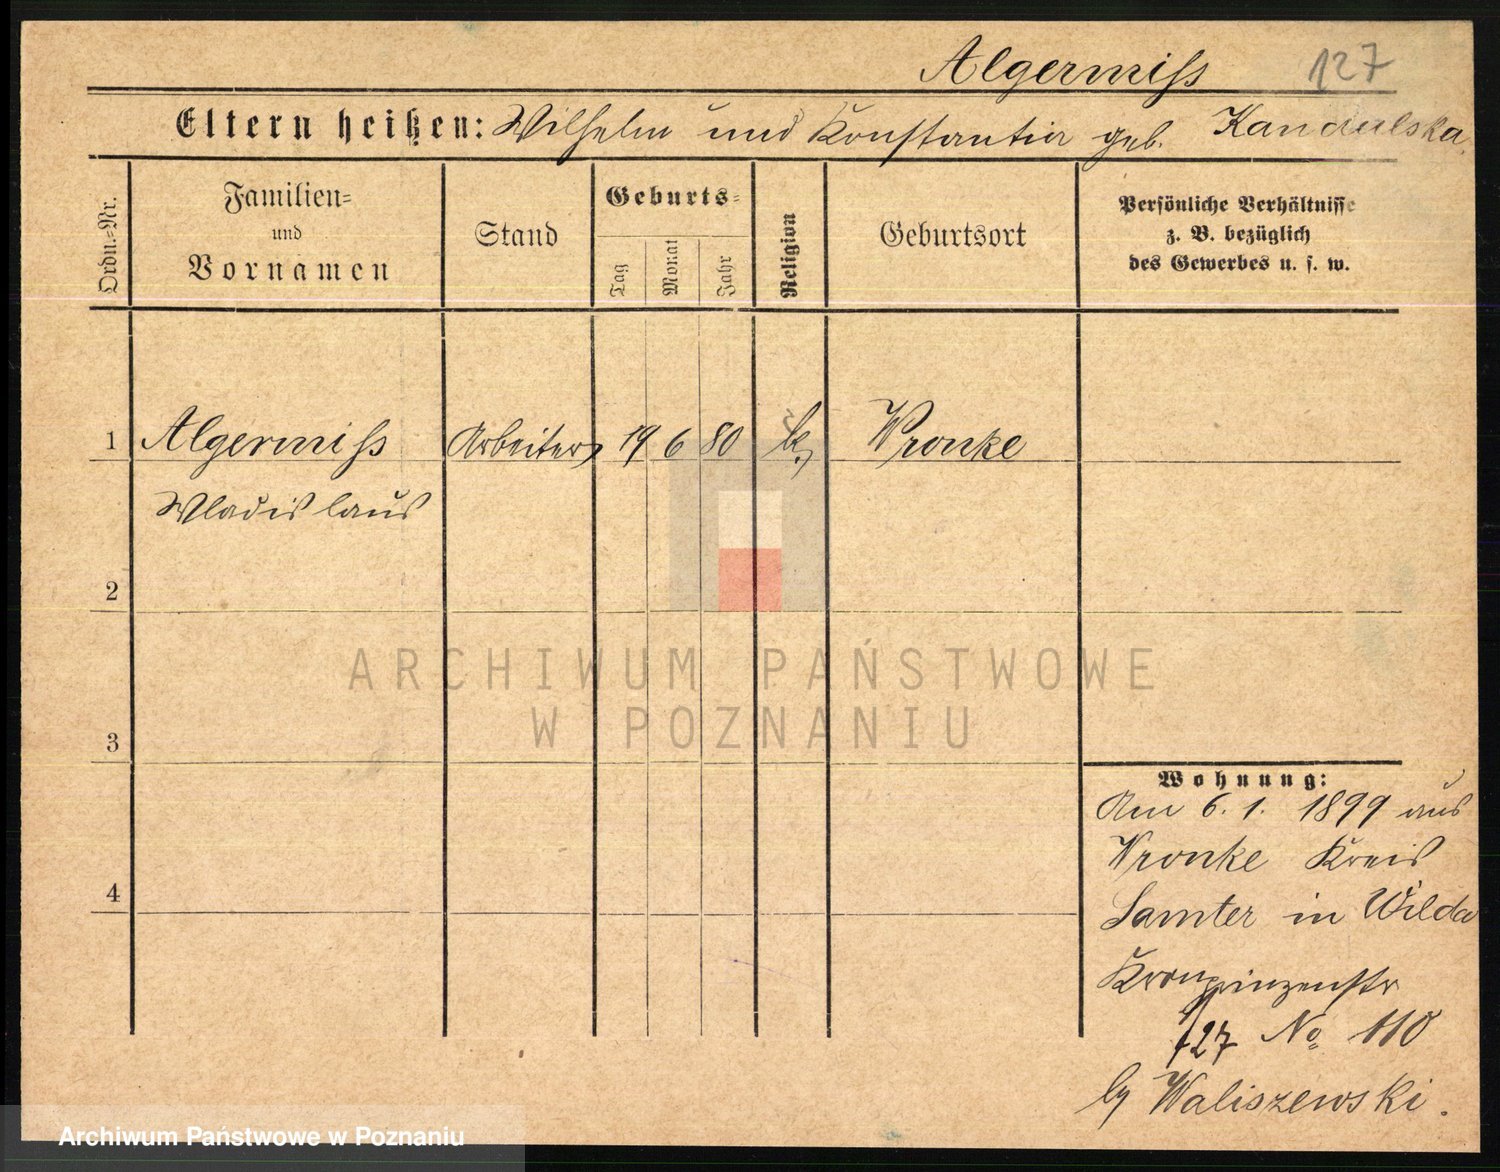 Algermiss 127
Eltern heißen: Wilhelm und Konstantia geb. Kandulska
Ordn.-Nr.
Familien-
und
Vornamen
Stand
Geburts-
Tag
Monat
Jahr
Religion
Geburtsort
Persönliche Verhältnisse
z. B. bezüglich
des Gewerbes u. s. w.
1 Algermiss Arbeiter 19 6 80 k. Wronke
Wladislaus
2
3
4
ARCHIWUM PAŃSTWOWE
W POZNANIU
Wohnung:
Am 6. 1. 1899 aus
Wronke Kreis
Samter in Wilda
Kronprinzenstr
127 No 110
Waliszewski.
Archiwum Państwowe w Poznaniu